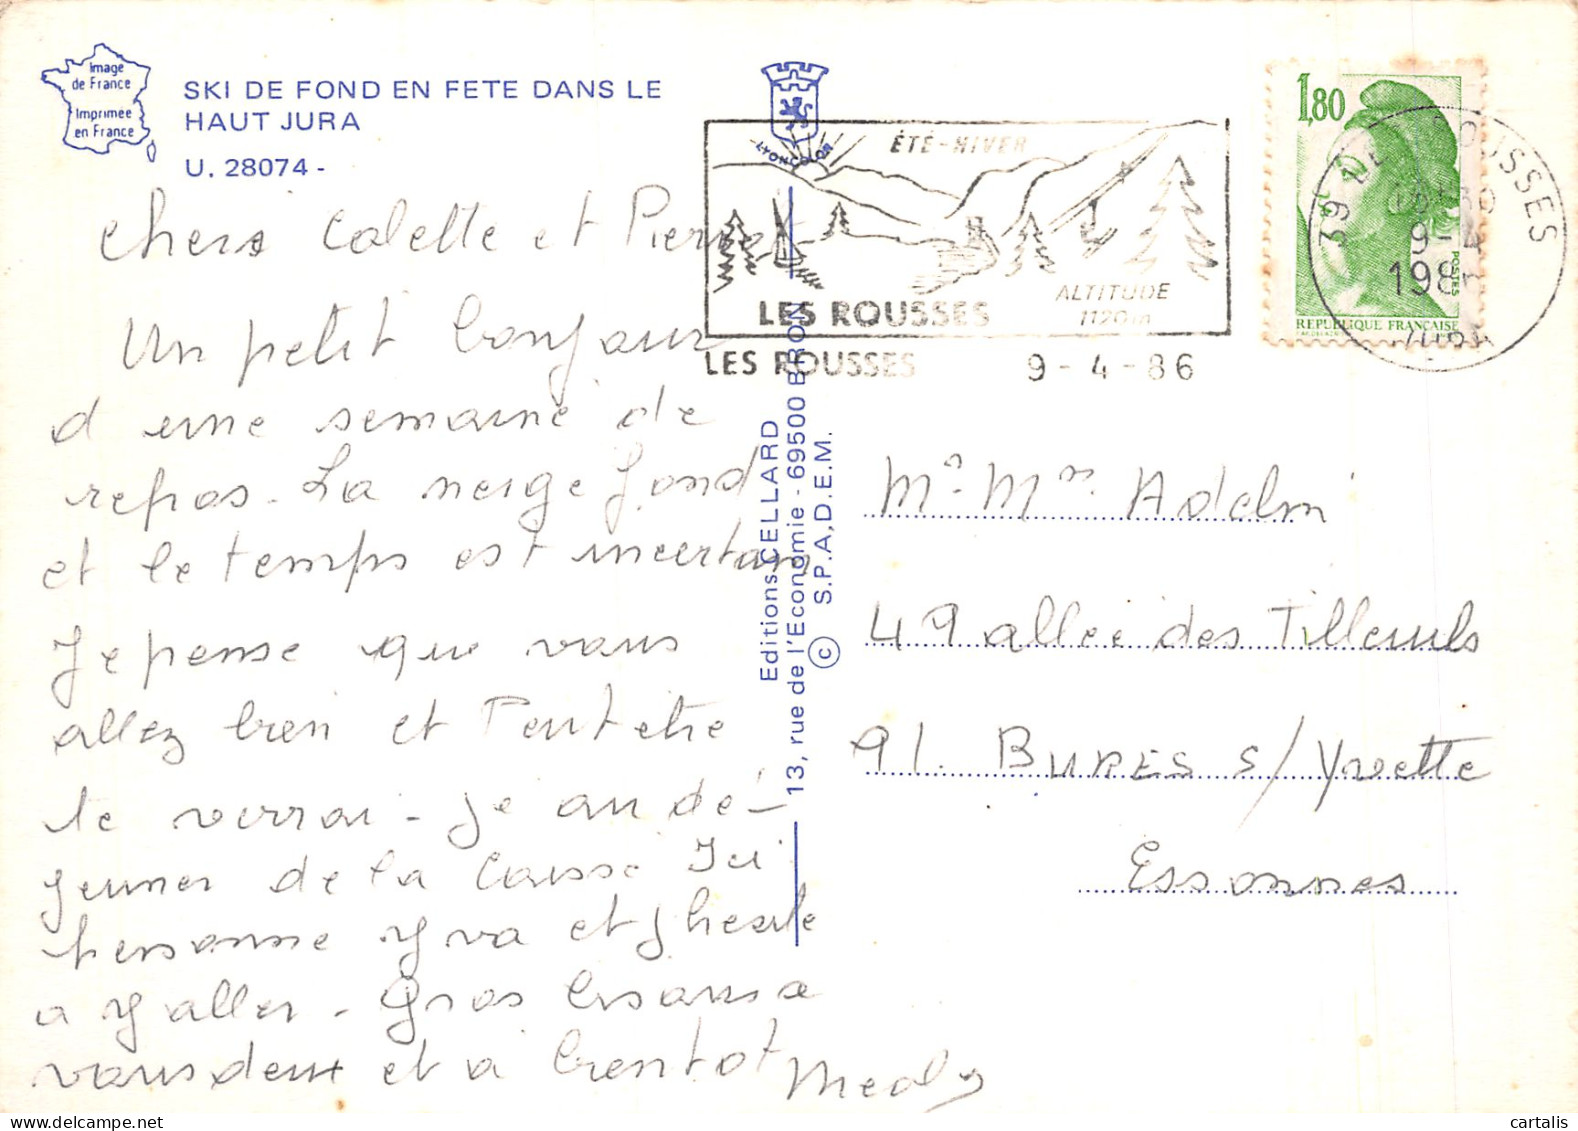 Image
de France
Imprimée
en France
SKI DE FOND EN FETE DANS LE
HAUT JURA
U. 28074 -
Chers Colette et Pierrot
Un petit bonjour
d'une semaine de
repos - La neige fond
et le temps est incertain
Je pense que vous
allez bien et Peut etre
te verrai - je au dé-
jeuner de la Caisse Ici
personne y va et j hesite
a y aller - Gros bisous a
vous deux et a bientot
LYONCOLOR
Editions CELLARD
13, rue de l'Economie - 69500 BRON
© S.P.A.D.E.M.
ÉTÉ-HIVER
ALTITUDE
1120m
LES ROUSSES
LES ROUSSES 9-4-86
1,80
POSTES
REPUBLIQUE FRANÇAISE
39 LES ROUSSES
9-4
1986
JURA
Mr Mme Adelmi
49 allée des Tilleuls
91. BURES s/Yvette
Essonnes
cartalis.com